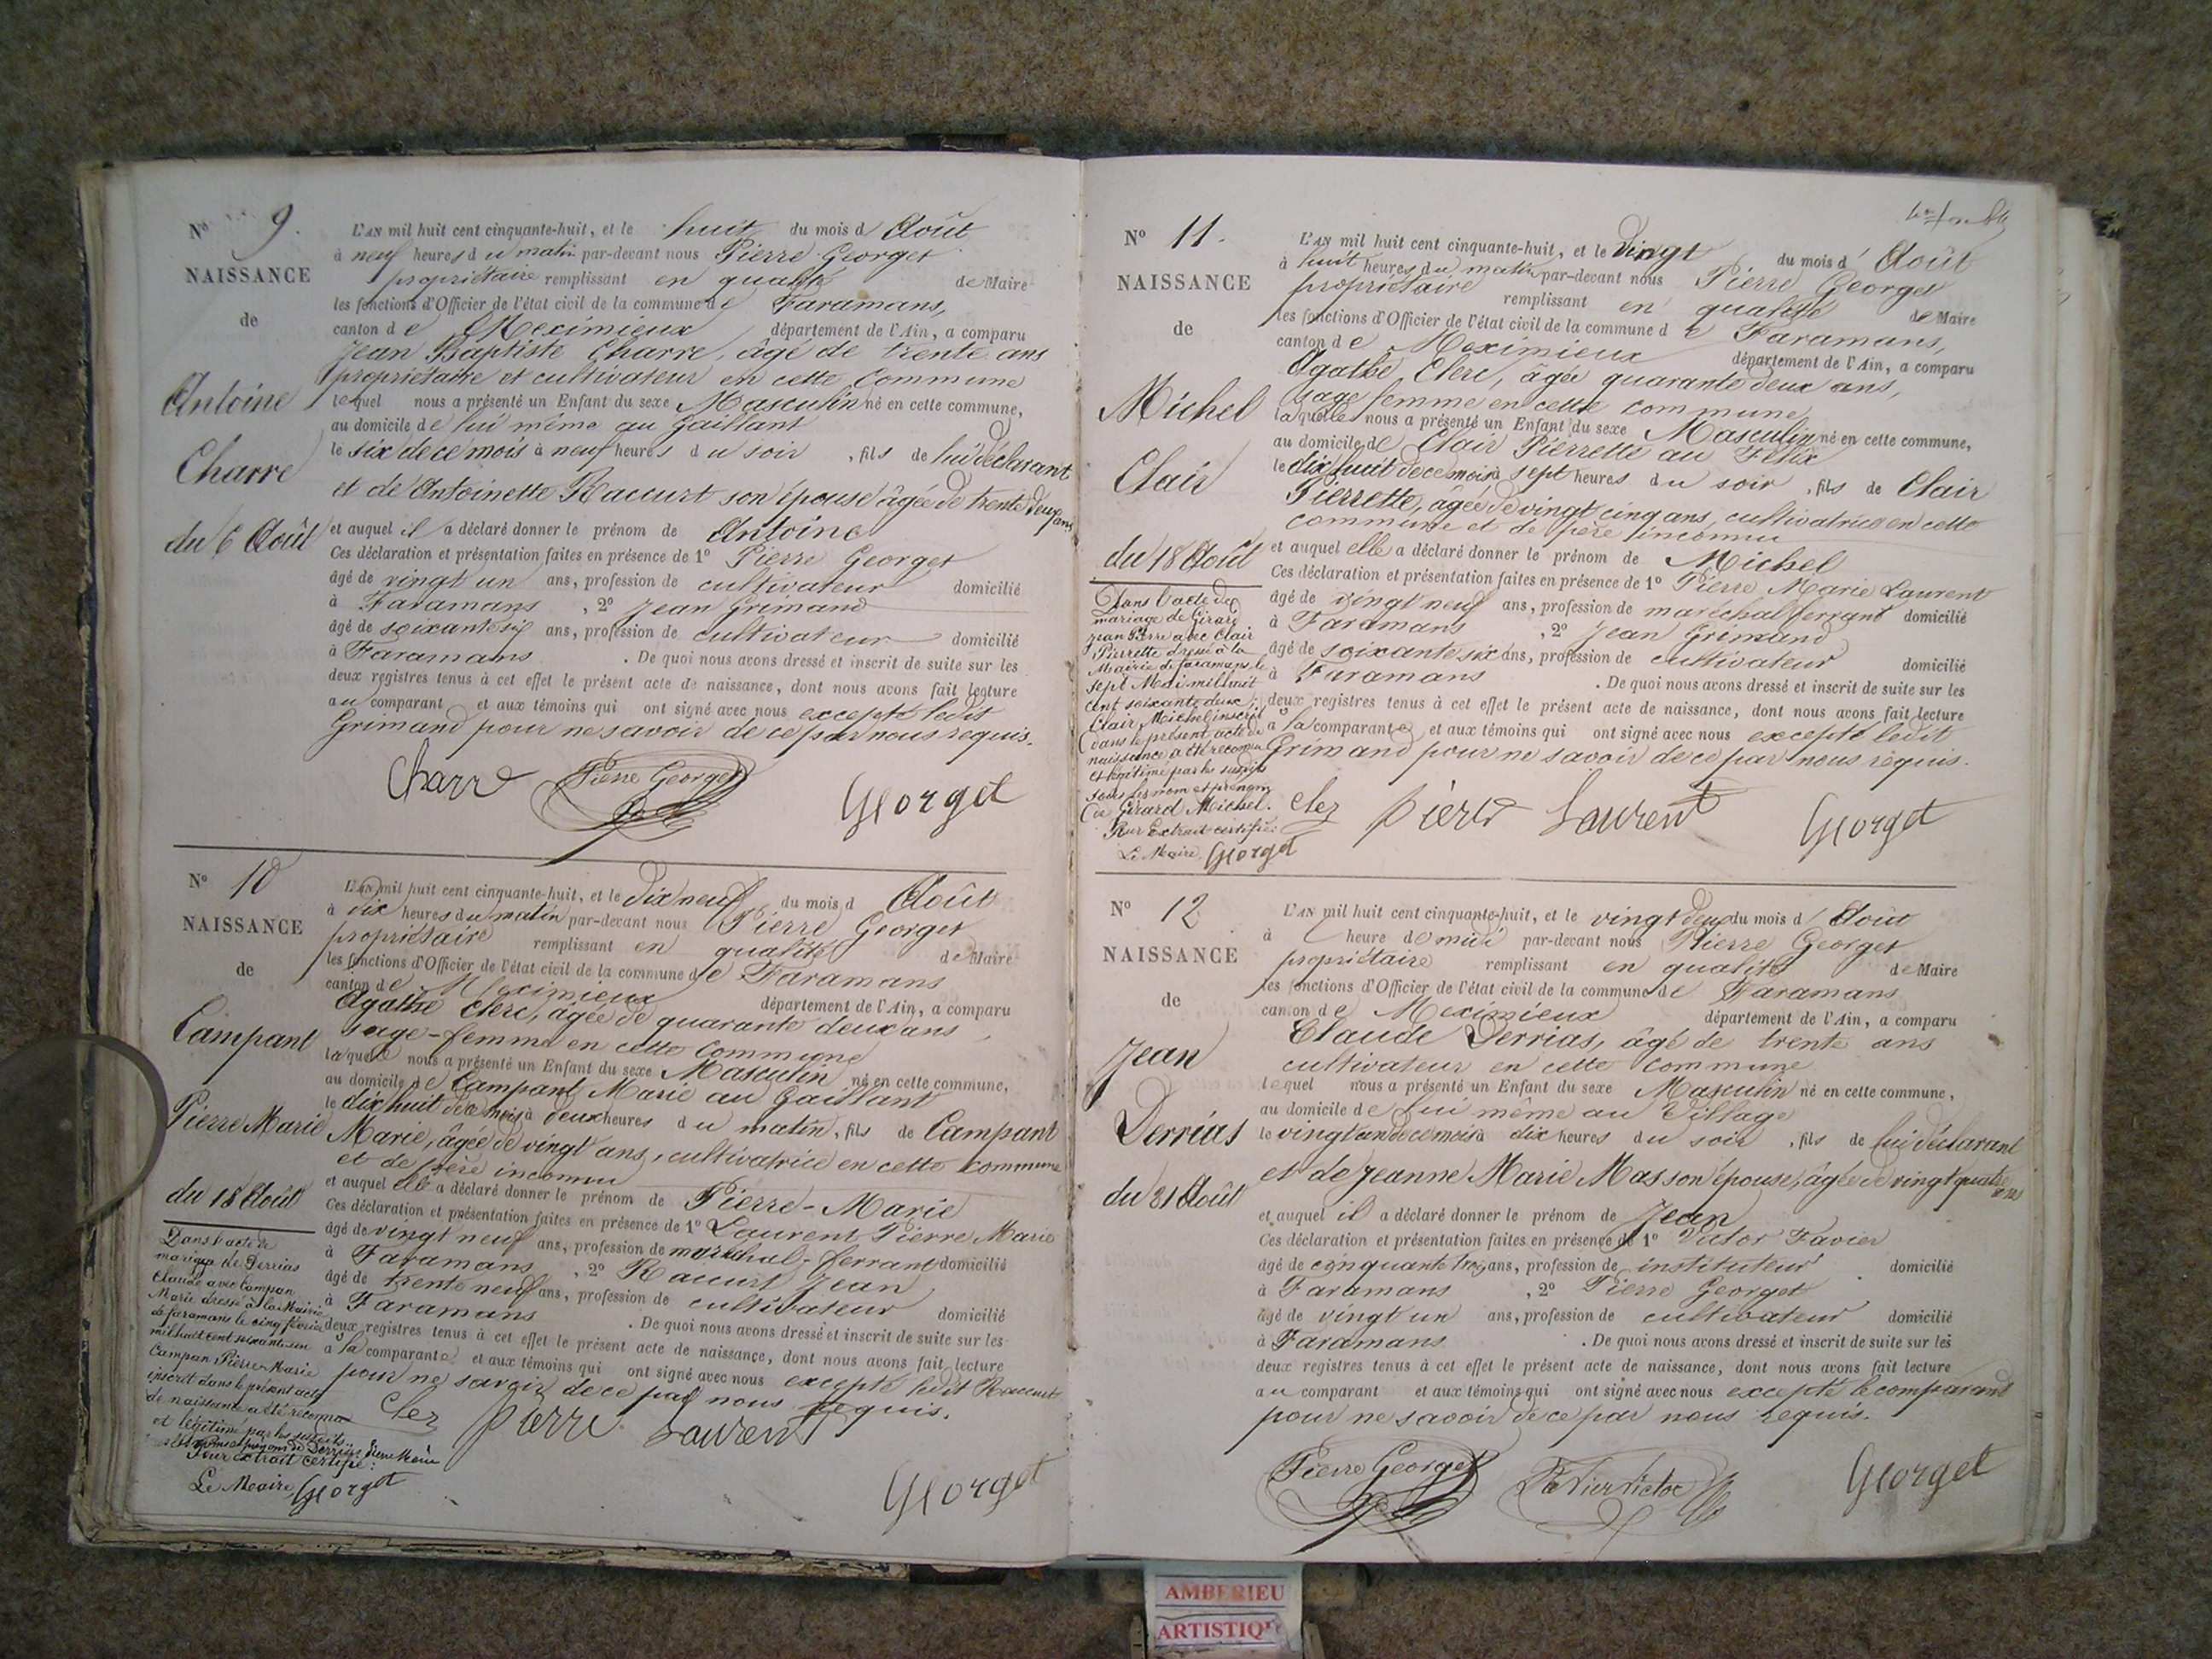 No 9.
NAISSANCE
de
Antoine
Charre
du 6 Août
L'AN mil huit cent cinquante-huit, et le huit du mois d Août
à neuf heures du matin par-devant nous Pierre Georget
propriétaire remplissant en qualité de Maire
les fonctions d'Officier de l'état civil de la commune de Faramans,
canton de Meximieux département de l'Ain, a comparu
Jean Baptiste Charre, âgé de trente ans
propriétaire et cultivateur en cette commune
lequel nous a présenté un Enfant du sexe Masculin né en cette commune,
au domicile de lui même au Gaillant
le six de ce mois à neuf heures du soir, fils de lui déclarant
et de Antoinette Raccurt son épouse âgée de trente deux ans
et auquel il a déclaré donner le prénom de Antoine
Ces déclaration et présentation faites en présence de 1º Pierre Georget
âgé de vingt un ans, profession de cultivateur domicilié
à Faramans, 2º Jean Grimand
âgé de soixante six ans, profession de cultivateur domicilié
à Faramans. De quoi nous avons dressé et inscrit de suite sur les
deux registres tenus à cet effet le présent acte de naissance, dont nous avons fait lecture
au comparant et aux témoins qui ont signé avec nous excepté ledit
Grimand pour ne savoir de ce par nous requis.
Charre Pierre Georget Georget
No 10
NAISSANCE
de
Campant
Pierre Marie
du 18 Août
L'AN mil huit cent cinquante-huit, et le dix neuf du mois d Août
à dix heures du matin par-devant nous Pierre Georget
propriétaire remplissant en qualité de Maire
les fonctions d'Officier de l'état civil de la commune de Faramans
canton de Meximieux département de l'Ain, a comparu
Agathe Clerc, âgée de quarante deux ans
sage-femme en cette commune
laquelle nous a présenté un Enfant du sexe Masculin né en cette commune,
au domicile de Campant Marie au Gaillant
le dix huit de ce mois à deux heures du matin, fils de Campant
Marie, âgée de vingt ans, cultivatrice en cette commune
et de père inconnu
et auquel elle a déclaré donner le prénom de Pierre-Marie
Ces déclaration et présentation faites en présence de 1º Laurent Pierre Marie
âgé de vingt neuf ans, profession de maréchal-ferrant domicilié
à Faramans, 2º Raccurt Jean
âgé de trente neuf ans, profession de cultivateur domicilié
à Faramans. De quoi nous avons dressé et inscrit de suite sur les
deux registres tenus à cet effet le présent acte de naissance, dont nous avons fait lecture
à la comparante et aux témoins qui ont signé avec nous excepté ledit Raccurt
pour ne savoir de ce par nous requis.
Clez Pierre Laurent
Georget
Dans l'acte de
mariage de Derrias
Claude avec Campan
Marie dressé à la Mairie
de faramans le cinq février
mil huit cent soixante un
Campan Pierre-Marie
inscrit dans le présent acte
de naissance a été reconnu
et légitimé par les susdits
Pierre Marie
Pour extrait certifié:
Le Maire Georget
No 11.
NAISSANCE
de
Michel
Clair
du 18 Août
L'AN mil huit cent cinquante-huit, et le Vingt du mois d' Août
à huit heures du matin par-devant nous Pierre Georget
propriétaire remplissant en qualité de Maire
les fonctions d'Officier de l'état civil de la commune de Faramans,
canton de Meximieux département de l'Ain, a comparu
Agathe Clerc, âgée quarante deux ans,
sage femme en cette commune
laquelle nous a présenté un Enfant du sexe Masculin né en cette commune,
au domicile de Clair Pierrette au Félix
le dix huit de ce mois à sept heures du soir, fils de Clair
Pierrette, âgée de vingt cinq ans, cultivatrice en cette
commune et de père inconnu
et auquel elle a déclaré donner le prénom de Michel
Ces déclaration et présentation faites en présence de 1º Pierre Marie Laurent
âgé de vingt neuf ans, profession de maréchal ferrant domicilié
à Faramans, 2º Jean Grimand
âgé de soixante six ans, profession de cultivateur domicilié
à Faramans. De quoi nous avons dressé et inscrit de suite sur les
deux registres tenus à cet effet le présent acte de naissance, dont nous avons fait lecture
à la comparante et aux témoins qui ont signé avec nous excepté ledit
Grimand pour ne savoir de ce par nous requis.
Clez Pierre Laurent Georget
Dans l'acte de
mariage de Girard
Jean Pierre avec Clair
Pierrette dressé à la
Mairie de faramans le
sept Mai mil huit
cent soixante deux,
Clair Michel inscrit
dans le présent acte de
naissance a été reconnu
et légitimé par les susdits
sous les nom et prénom
de Girard Michel.
Pour Extrait certifié:
Le Maire Georget
No 12
NAISSANCE
de
Jean
Derrias
du 21 Août
L'AN mil huit cent cinquante-huit, et le vingt deux du mois d' Août
à heure de midi par-devant nous Pierre Georget
propriétaire remplissant en qualité de Maire
les fonctions d'Officier de l'état civil de la commune de Faramans
canton de Meximieux département de l'Ain, a comparu
Claude Derrias, âgé de trente ans
cultivateur en cette commune
lequel nous a présenté un Enfant du sexe Masculin né en cette commune,
au domicile de lui même au Village
le vingt un de ce mois à dix heures du soir, fils de lui déclarant
et de Jeanne Marie Mas son épouse, âgée de vingt quatre ans
et auquel il a déclaré donner le prénom de Jean
Ces déclaration et présentation faites en présence de 1º Victor Favier
âgé de cinquante trois ans, profession de instituteur domicilié
à Faramans, 2º Pierre Georget
âgé de vingt un ans, profession de cultivateur domicilié
à Faramans. De quoi nous avons dressé et inscrit de suite sur les
deux registres tenus à cet effet le présent acte de naissance, dont nous avons fait lecture
au comparant et aux témoins qui ont signé avec nous excepté le comparant
pour ne savoir de ce par nous requis.
Pierre Georget Favier Victor Georget
AMBERIEU
ARTISTIQU